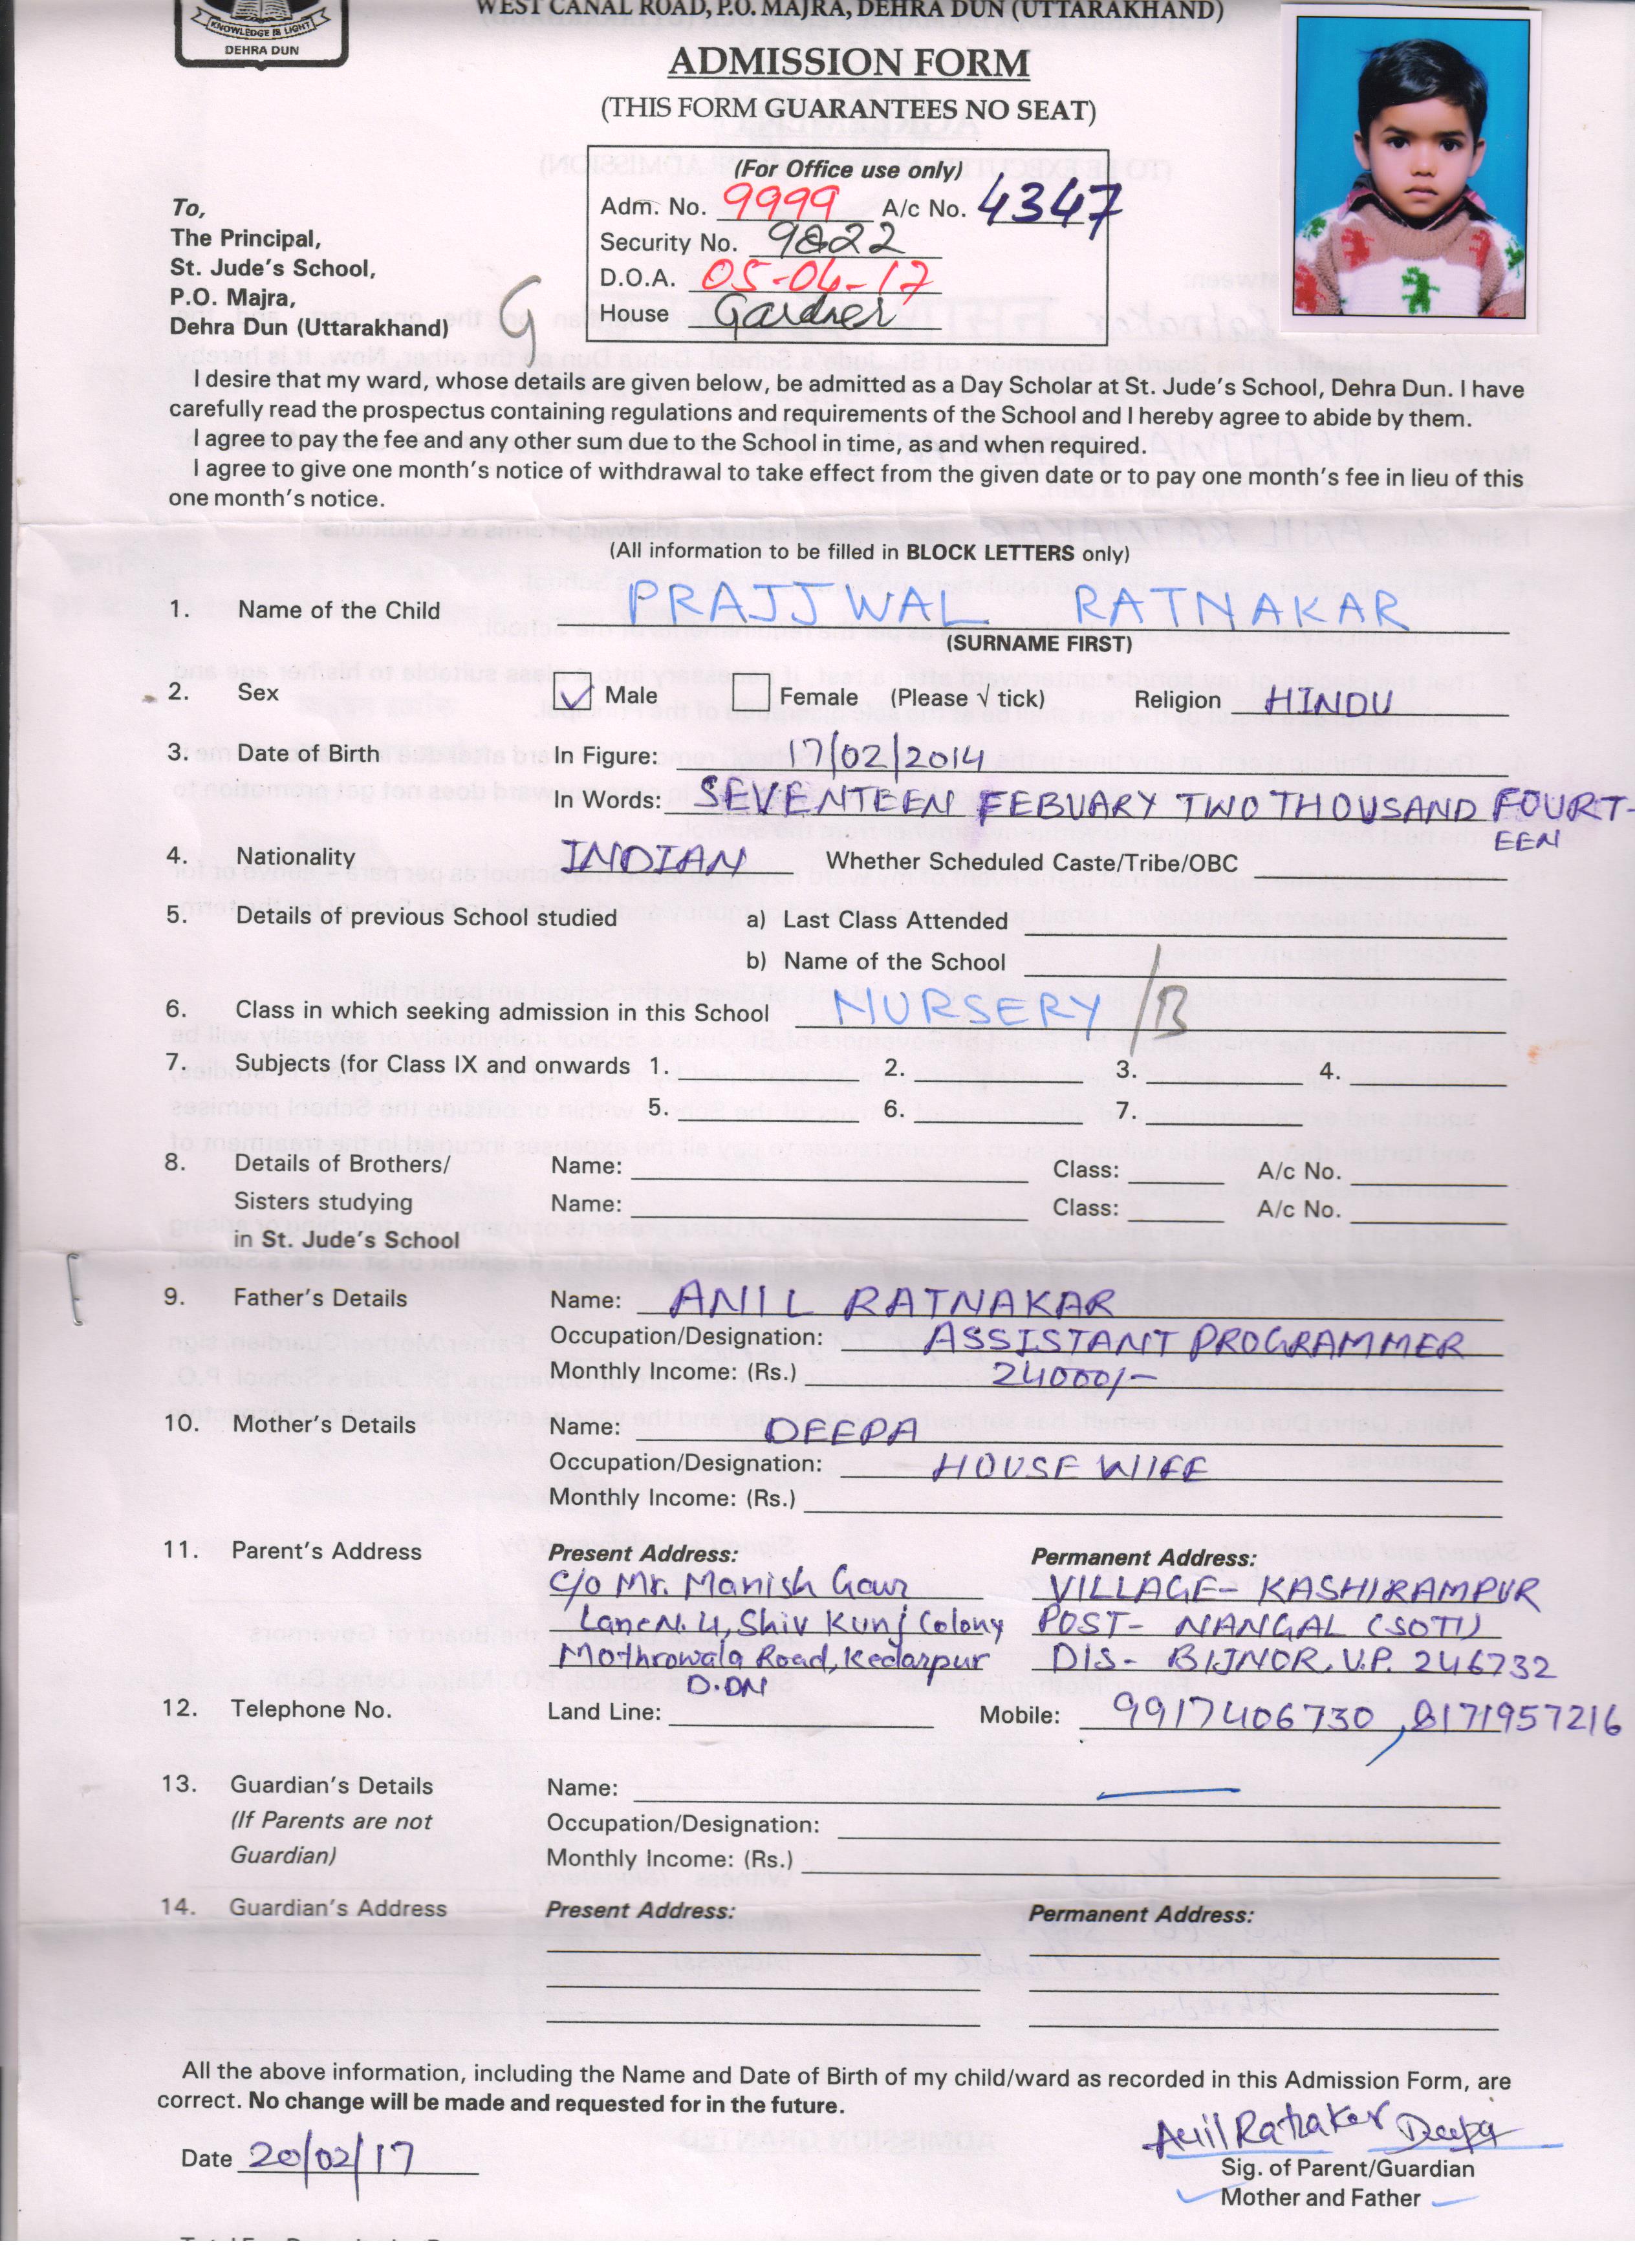 WEST CANAL ROAD, P.O. MAJRA, DEHRA DUN (UTTARAKHAND)
KNOWLEDGE IS LIGHT
DEHRA DUN
ADMISSION FORM
(THIS FORM GUARANTEES NO SEAT)
(For Office use only)
Adm. No. 9999 A/c No. 4347
Security No. 9822
D.O.A. 05-04-17
House Gardner
To,
The Principal,
St. Jude's School,
P.O. Majra,
Dehra Dun (Uttarakhand)
I desire that my ward, whose details are given below, be admitted as a Day Scholar at St. Jude's School, Dehra Dun. I have
carefully read the prospectus containing regulations and requirements of the School and I hereby agree to abide by them.
I agree to pay the fee and any other sum due to the School in time, as and when required.
I agree to give one month's notice of withdrawal to take effect from the given date or to pay one month's fee in lieu of this
one month's notice.
(All information to be filled in BLOCK LETTERS only)
1. Name of the Child PRAJJWAL RATNAKAR
(SURNAME FIRST)
2. Sex Male Female (Please √ tick) Religion HINDU
3. Date of Birth In Figure: 17/02/2014
In Words: SEVENTEEN FEBUARY TWO THOUSAND FOURT-
EEN
4. Nationality INDIAN Whether Scheduled Caste/Tribe/OBC
5. Details of previous School studied a) Last Class Attended
b) Name of the School
6. Class in which seeking admission in this School NURSERY /B
7. Subjects (for Class IX and onwards 1. 2. 3. 4.
5. 6. 7.
8. Details of Brothers/ Name: Class: A/c No.
Sisters studying Name: Class: A/c No.
in St. Jude's School
9. Father's Details Name: ANIL RATNAKAR
Occupation/Designation: ASSISTANT PROGRAMMER
Monthly Income: (Rs.) 24000/-
10. Mother's Details Name: DEEPA
Occupation/Designation: HOUSE WIFE
Monthly Income: (Rs.)
11. Parent's Address Present Address: Permanent Address:
C/o Mr. Manish Gaur VILLAGE- KASHIRAMPUR
Lane N. 4, Shiv Kunj Colony POST- NANGAL (SOTI)
Mothrowala Road, Kedarpur DIS- BIJNOR, U.P. 246732
D.DN
12. Telephone No. Land Line: Mobile: 9917406730, 8171957216
13. Guardian's Details Name:
(If Parents are not Occupation/Designation:
Guardian) Monthly Income: (Rs.)
14. Guardian's Address Present Address: Permanent Address:
All the above information, including the Name and Date of Birth of my child/ward as recorded in this Admission Form, are
correct. No change will be made and requested for in the future.
Anil Ratnaker Deepa
Date 20/02/17
Sig. of Parent/Guardian
Mother and Father